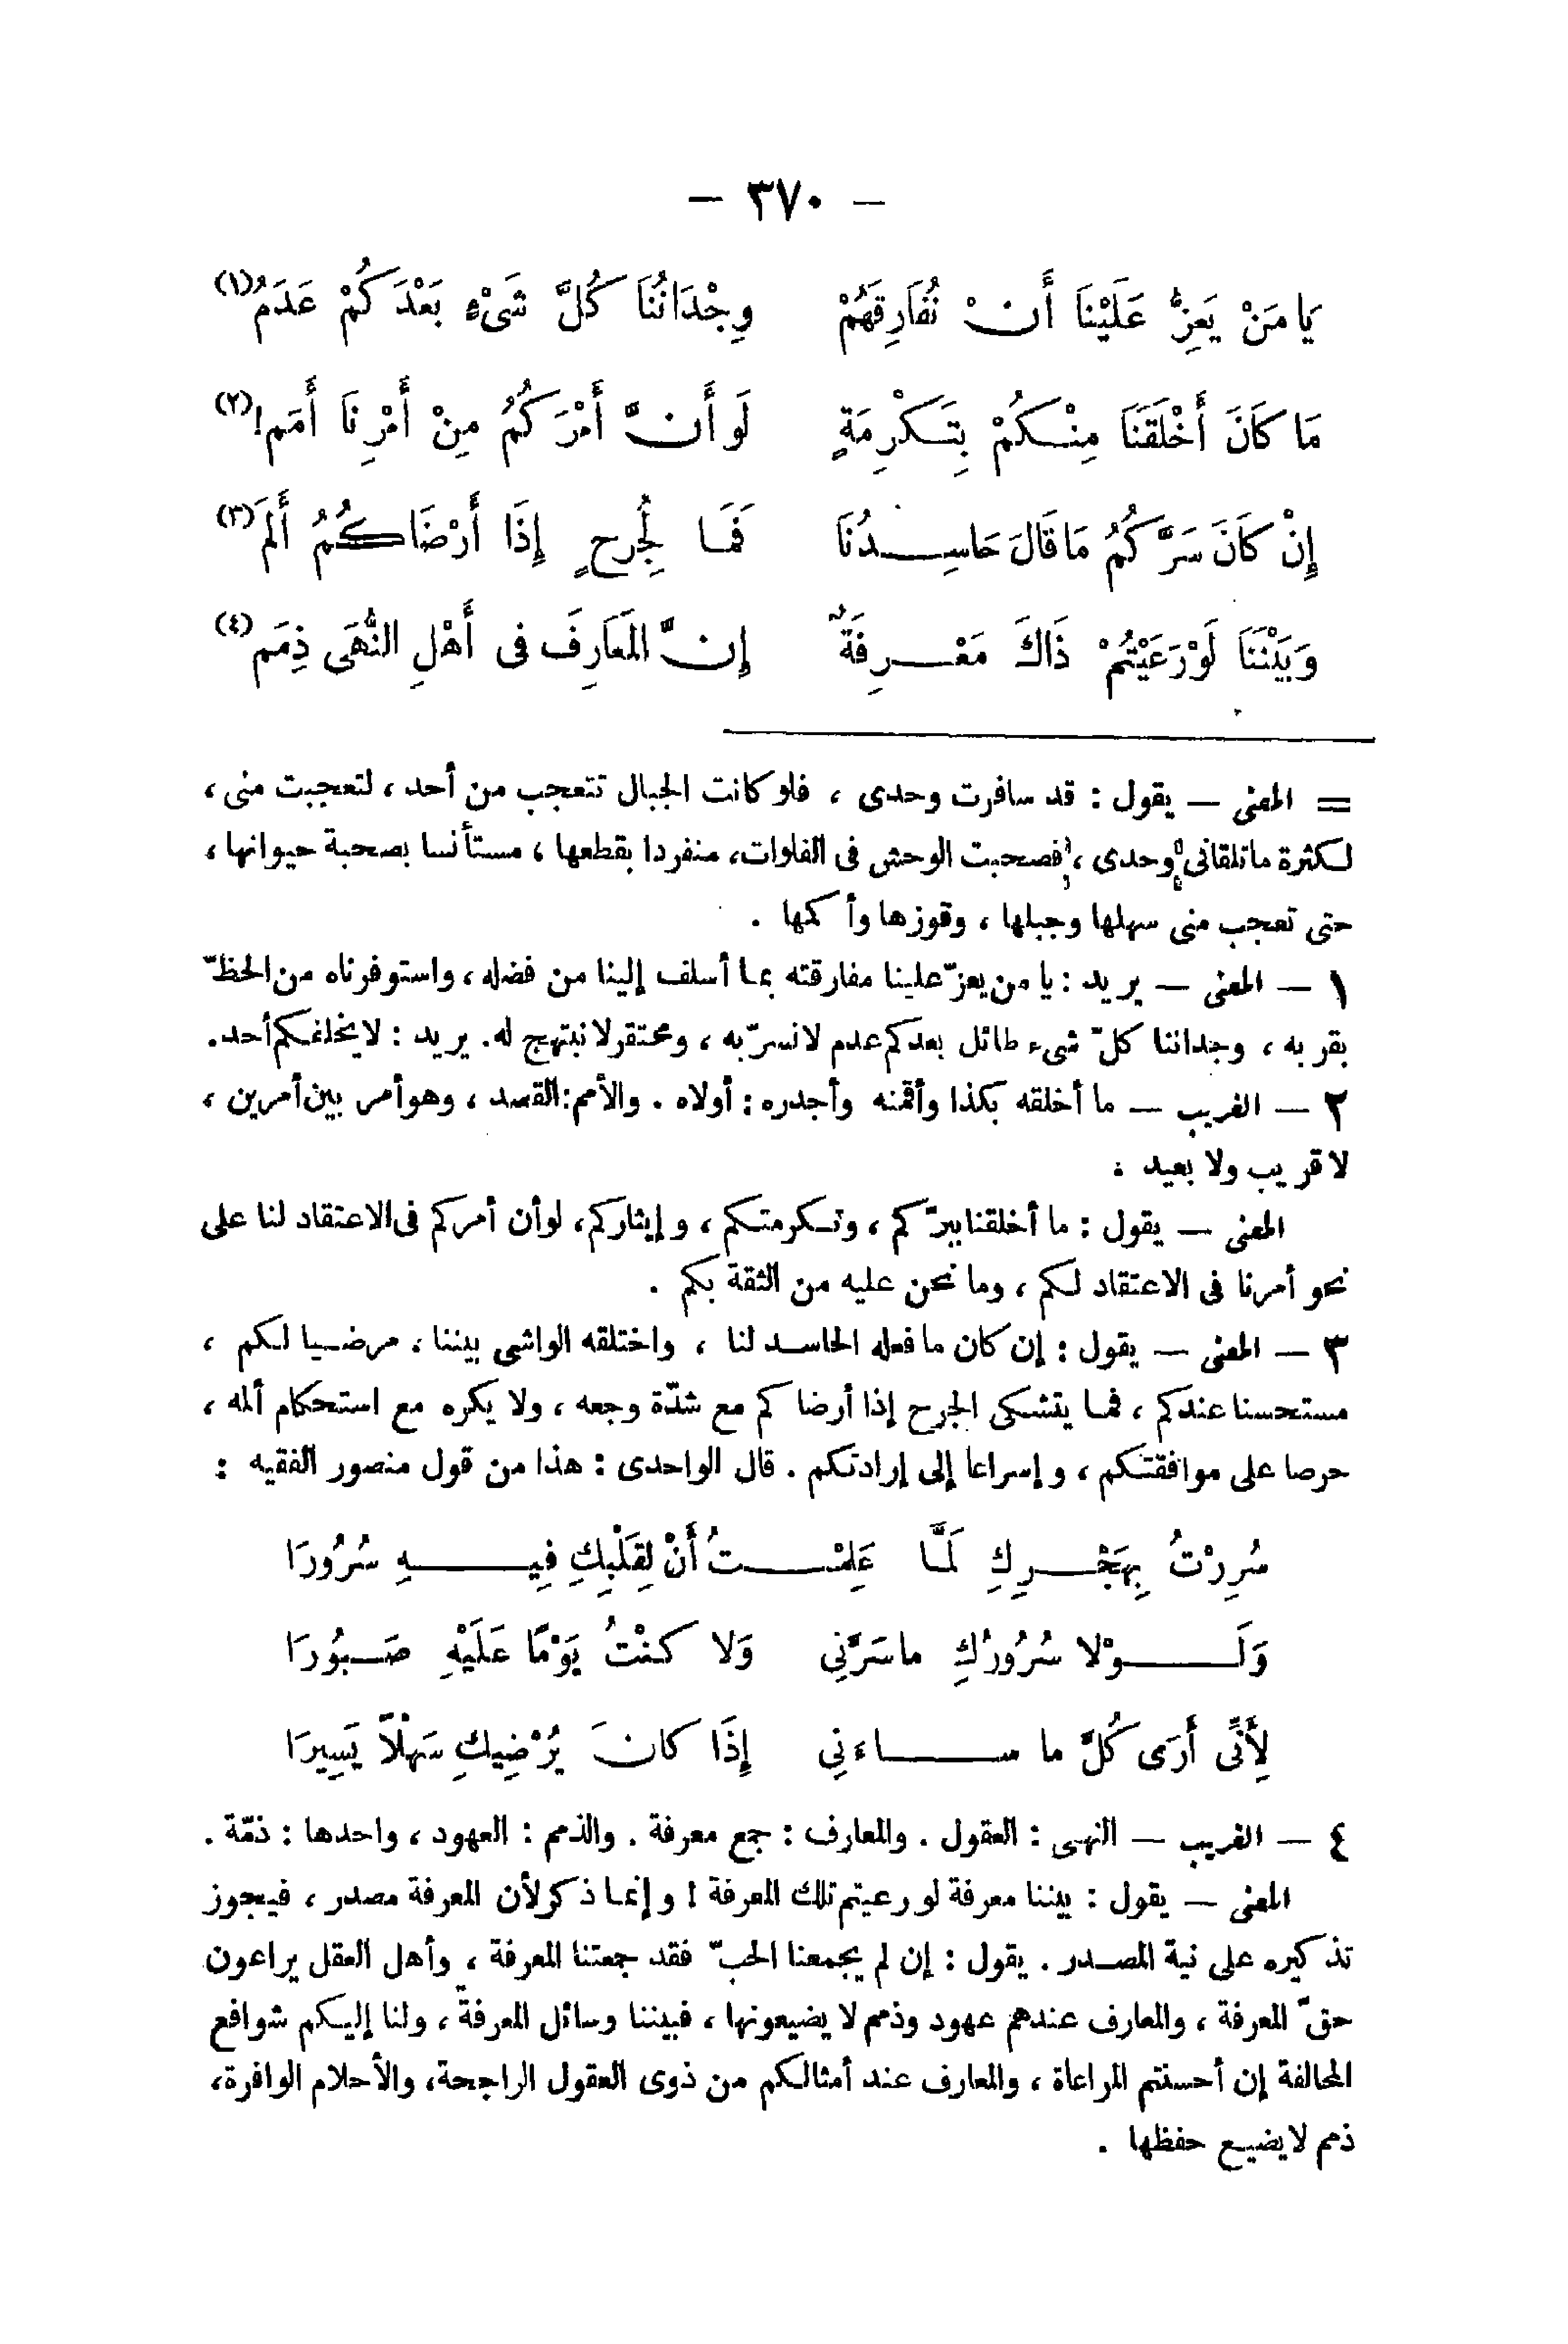 – ٣٧٠ –
يَا مَنْ يَعِزُّ عَلَيْنَا أَنْ نُفَارِقَهُمْ وِجْدَانُنَا كُلَّ شَىْءٍ بَعْدَكُمْ عَدَمُ(١)
مَا كَانَ أَخْلَقَنَا مِنْكُمْ بِتَكْرِمَةٍ لَوْ أَنَّ أَمْرَكُمُ مِنْ أَمْرِنَا أَمَم!(٢)
إِنْ كَانَ سَرَّكُمُ مَا قَالَ حَاسِدُنَا فَمَا لِجُرحٍ إِذَا أَرْضَاكُمُ أَلَم(٣)
وَبَيْنَنَا لَوْ رَعَيْتُمْ ذَاكَ مَعْرِفَةٌ إِنَّ المَعَارِفَ فى أَهْلِ النُّهَى ذِمَم(٤)
= المعنى – يقول : قد سافرت وحدى ، فلو كانت الجبال تتعجب من أحد ، لتعجبت منى ،
لكثرة ما تلقانى وحدى ، فصحبت الوحش فى الفلوات، منفردا بقطعها ، مستأنسا بصحبة حيوانها ،
حتى تعجب منى سهلها وجبلها ، وقوزها وأكمها .
١ – المعنى – يريد : يا من يعزّ علينا مفارقته بما أسلف إلينا من فضله ، واستوفرناه من الحظّ
بقربه ، وجداننا كلّ شىء طائل بعدكم عدم لا نسرّ به ، ومحتقر لا نبتهج له. يريد : لا يخلفكم أحد.
٢ – الغريب – ما أخلقه بكذا وأقمنه وأجدره : أولاه . والأمم : القصد ، وهو أمر بين أمرين ،
لا قريب ولا بعيد .
المعنى – يقول : ما أخلقنا ببرّكم ، وتكرمتكم ، وإيثاركم، لو أن أمركم فى الاعتقاد لنا على
نحو أمرنا فى الاعتقاد لكم ، وما نحن عليه من الثقة بكم .
٣ – المعنى – يقول : إن كان ما فعله الحاسد لنا ، واختلقه الواشى بيننا ، مرضيا لكم ،
مستحسنا عندكم ، فما يتشكى الجرح إذا أرضاكم مع شدّة وجعه ، ولا يكره مع استحكام ألمه ،
حرصا على موافقتكم ، وإسراعا إلى إرادتكم . قال الواحدى : هذا من قول منصور الفقيه :
سُرِرْتُ بِهَجْرِكِ لَمَّا عَلِمْتُ أَنْ لِقَلْبِكِ فِيهِ سُرُورَا
وَلَوْلا سُرُورُكِ ما سَرَّنِى وَلا كنْتُ يَوْمًا عَلَيْهِ صَبُورَا
لِأَنِّى أَرَى كُلَّ ما ساءنِى إِذَا كانَ يُرْضِيكِ سَهْلاً يَسِيرَا
٤ – الغريب – النهى : العقول . والمعارف : جمع معرفة . والذمم : العهود ، واحدها : ذمّة .
المعنى – يقول : بيننا معرفة لو رعيتم تلك المعرفة ! وإنما ذكر لأن المعرفة مصدر ، فيجوز
تذكيره على نية المصدر . يقول : إن لم يجمعنا الحبّ فقد جمعتنا المعرفة ، وأهل العقل يراعون
حقّ المعرفة ، والمعارف عندهم عهود وذمم لا يضيعونها ، فبيننا وسائل المعرفة ، ولنا إليكم شوافع
المحالفة إن أحسنتم المراعاة ، والمعارف عند أمثالكم من ذوى العقول الراجحة، والأحلام الوافرة،
ذمم لا يضيع حفظها .